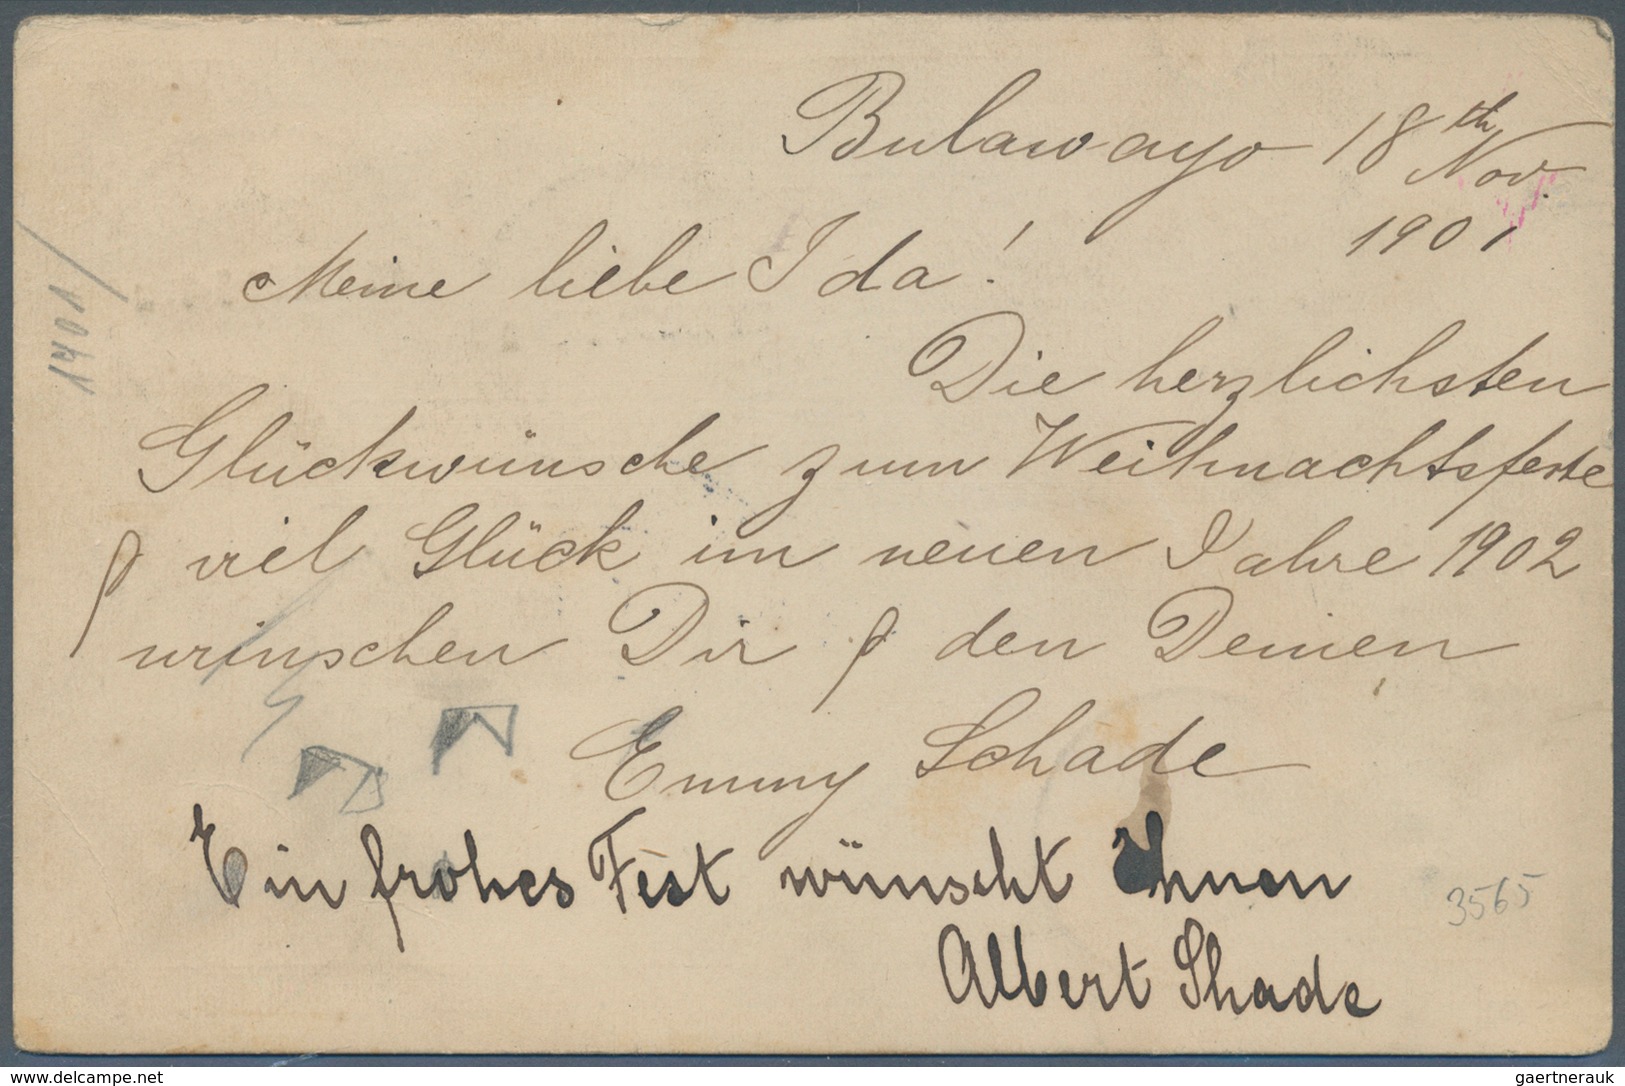 Bulawayo 18th Nov.
1901
Meine liebe Ida!
Die herzlichsten
Glückwünsche zum Weihnachtsfeste
& viel Glück im neuen Jahre 1902
wünschen Dir & den Deinen
Emmy Schade
Ein frohes Fest wünscht Ihnen
Albert Shade
1401/
3565
www.delcampe.net
gaertnerauk